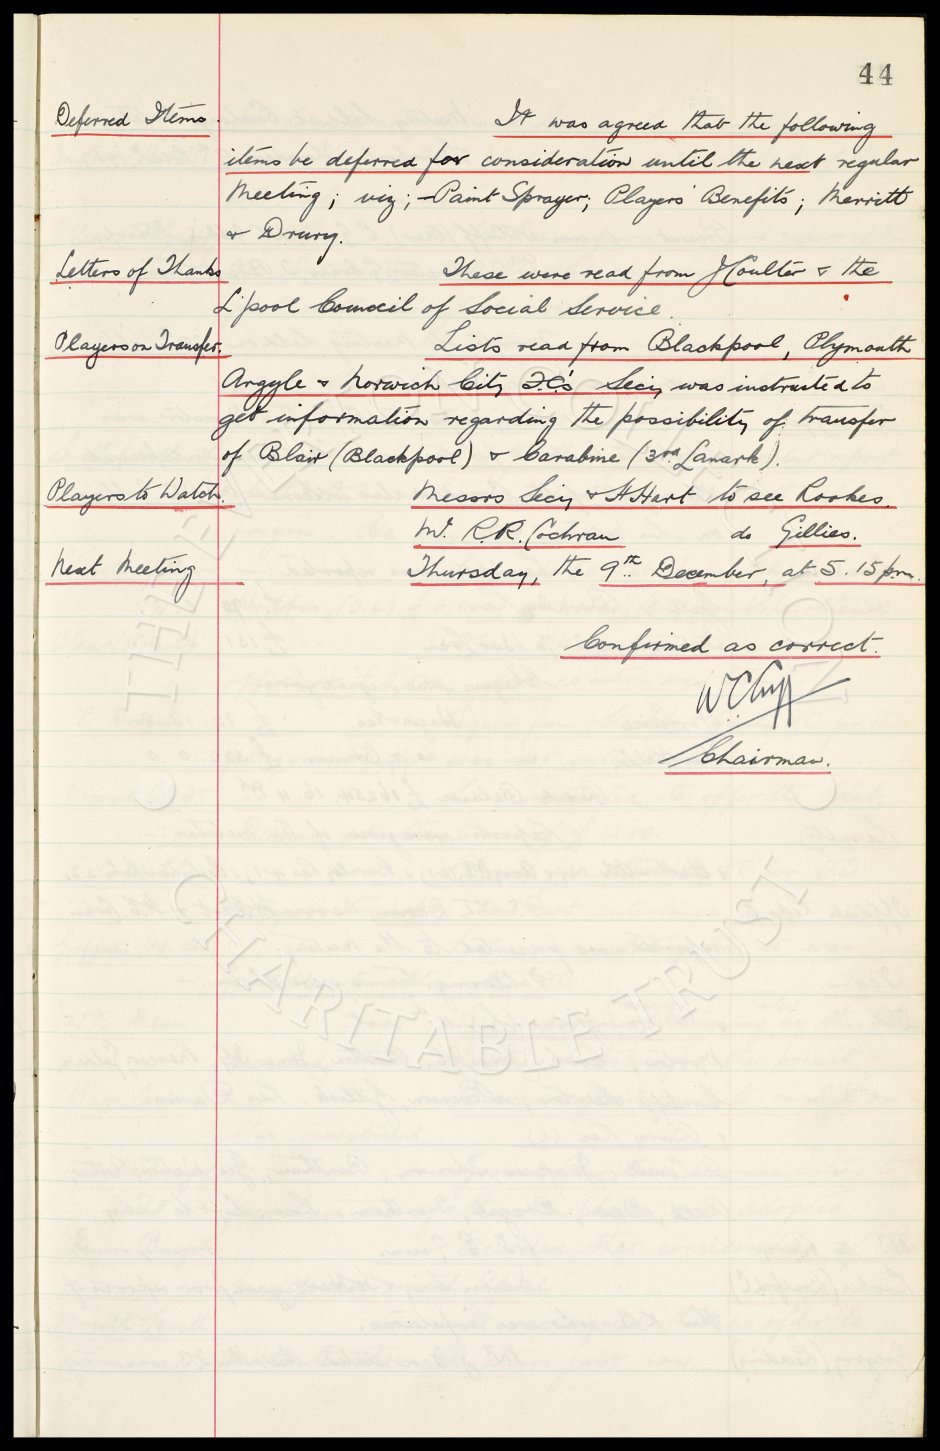 44
Deferred Items. It was agreed that the following
items be deferred for consideration until the next regular
Meeting; viz; - Paint Sprayer; Players' Benefits; Merritt
& Drury.
Letters of Thanks These were read from J Coulter & the
L'pool Council of Social Service.
Players on Transfer. Lists read from Blackpool, Plymouth
Argyle & Norwich City F.C's Secy was instructed to
get information regarding the possibility of transfer
of Blair (Blackpool) & Carabine (3rd Lanark).
Players to Watch. Messrs Secy & H Hart to see Rookes.
Mr. R.R. Cochran do Gillies.
Next Meeting Thursday, the 9th December, at 5.15 p.m.
Confirmed as correct.
W.C. Cuff
Chairman.
THE EVERTON COLLECTION
CHARITABLE TRUST